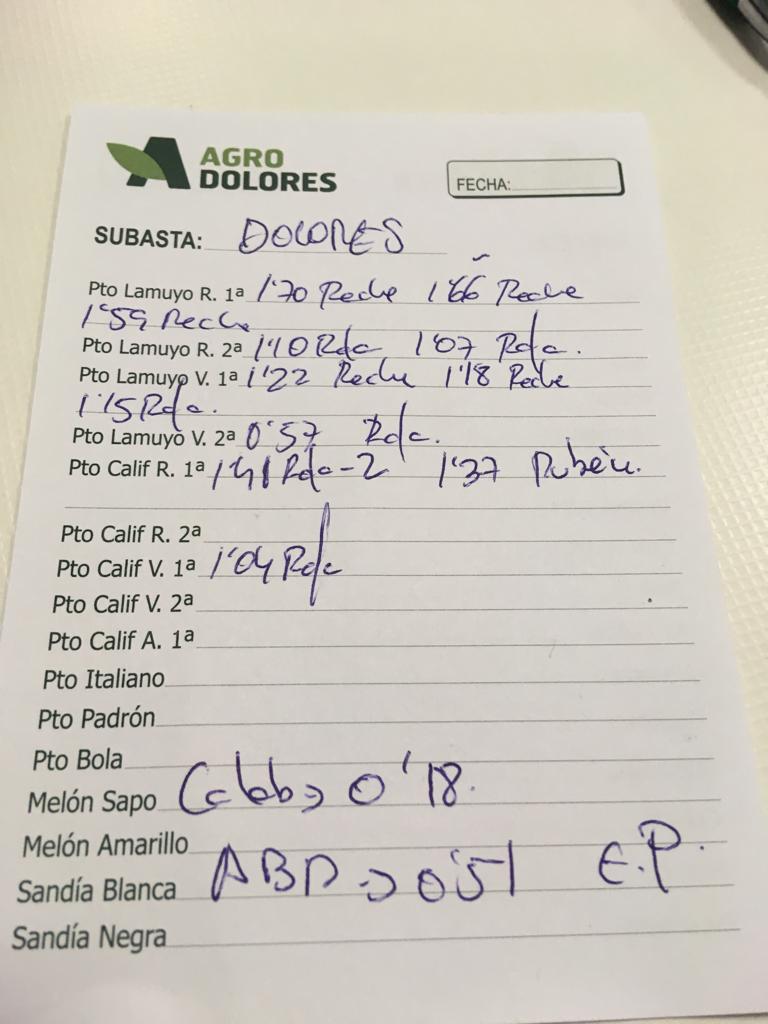 AGRO
DOLORES
FECHA:
SUBASTA: DOLORES
Pto Lamuyo R. 1ª 1'70 Reche 1'66 Reche
1'59 Reche
Pto Lamuyo R. 2ª 1'10 Rda 1'07 Rda.
Pto Lamuyo V. 1ª 1'22 Reche 1'18 Reche
1'15 Rda.
Pto Lamuyo V. 2ª 0'57 Rda.
Pto Calif R. 1ª 1'41 Rda-2 1'37 Rubén.
Pto Calif R. 2ª
Pto Calif V. 1ª 1'04 Rda
Pto Calif V. 2ª
Pto Calif A. 1ª
Pto Italiano
Pto Padrón
Pto Bola
Melón Sapo Calab → 0'18.
Melón Amarillo
Sandía Blanca → 0'51 E.P.
Sandía Negra